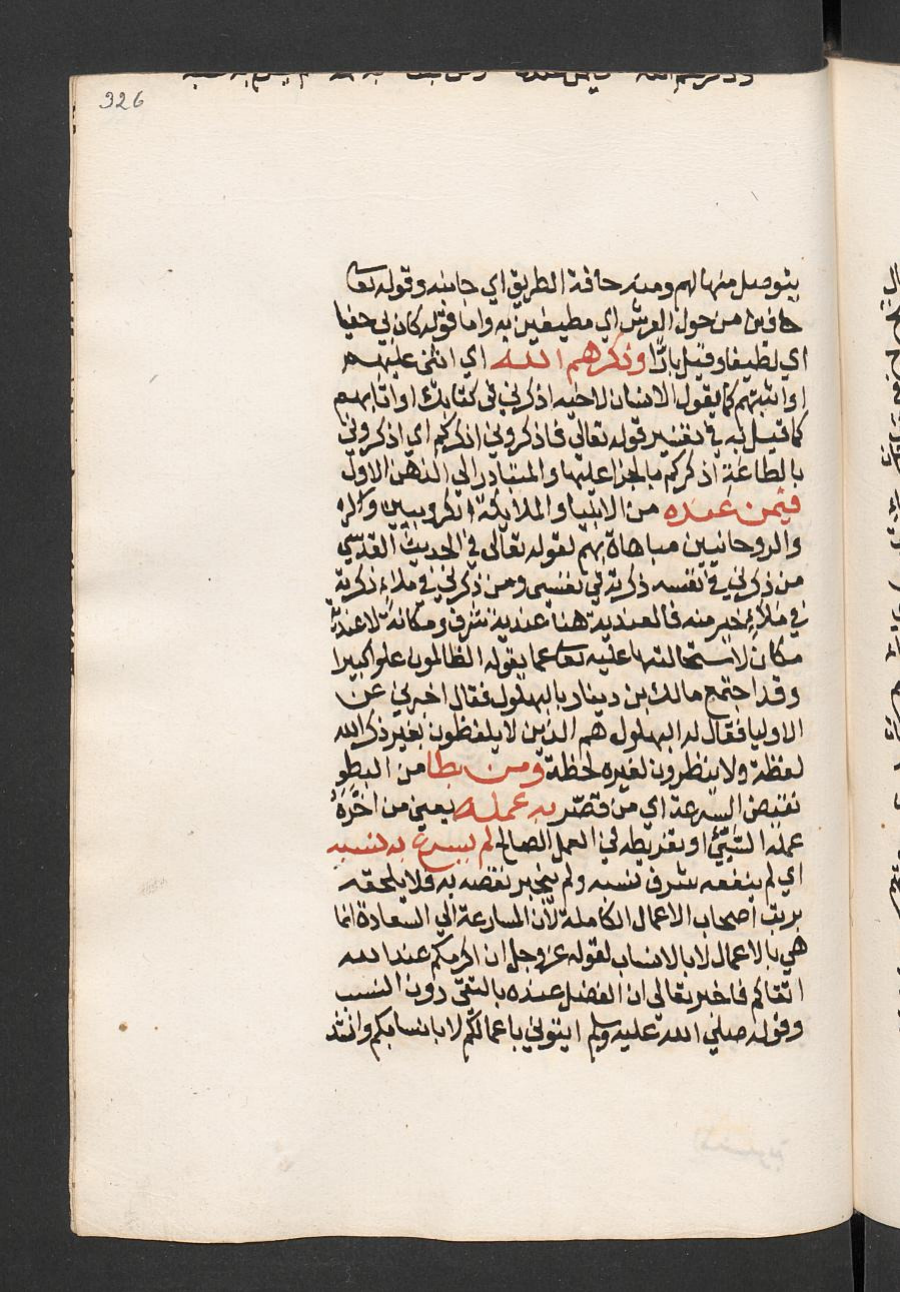 326
يتوصل منها لهم ومنه حافة الطريق اي جانبه وقوله تعا
حافين من حول العرش اي مطيفين به واما قوله كان بي حفيا
اي لطيفا وقيل بارًّا وذكرهم الله اي اثنى عليهم
او اثبتهم كما يقول الانسان لاخيه اذكرني في كتابك او اثابهم
كما قيل به في تفسير قوله تعالى فاذكروني اذكركم اي اذكروني
بالطاعة اذكركم بالجزا عليها والمتبادر الى الذهن الاول
فيمن عنده من الانبيا والملايكة الكروبيين
والروحانيين مباهاة بهم لقوله تعالى في الحديث القدسي
من ذكرني في نفسه ذكرته في نفسي ومن ذكرني في ملاء ذكرته
في ملاءٍ خير منه فالعندية هنا عندية شرف ومكانة لا عندية
مكان لاستحالتها عليه تعا عما يقوله الظالمون علوا كبيرا
وقد اجتمع مالك بن دينار بالبهلول فقال اخبرني عن
الاوليا فقال له البهلول هم الذين لا يلفظون بغير ذكر الله
لفظة ولا ينظرون لغيره لحظة ومن بطا من البطو
نقيض السرعة اي من قصّر به عمله يعني من اخّره
عمله السّيّئ او تفريطه في العمل الصالح لم يسرع به نسبه
اي لم ينفعه شرف نسبه ولم ينجبر نقصه به فلا يلحقه
برتب اصحاب الاعمال الكاملة لان المسارعة الى السعادة انما
هي بالاعمال لا بالانساب لقوله عز وجل ان اكرمكم عند الله
اتقاكم فاخبر تعالى ان الفضل عنده بالتقى دون النسب
وقوله صلى الله عليه وسلم ايتوني باعمالكم لا بانسابكم وانشد